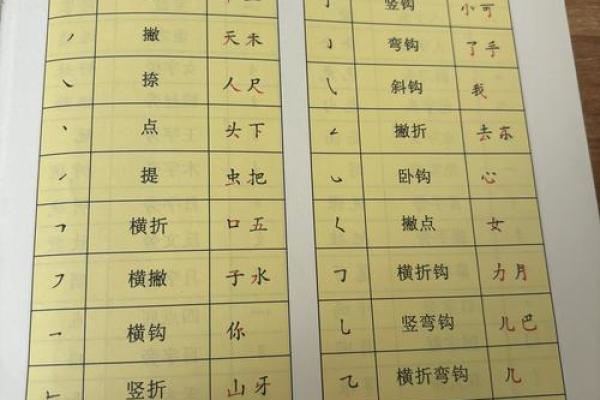 丿 撇 天 未
㇏ 捺 人 尺
丶 点 头 下
㇀ 提 虫 把
㇕ 横折 口 五
㇇ 横撇 于 水
㇖ 横钩 你
竖折 山 牙
亅 竖钩 小 可
㇁ 弯钩 了 手
㇂ 斜钩 我
㇜ 撇折 去 东
㇃ 卧钩 心
㇛ 撇点 女
㇆ 横折钩 力 月
㇟ 竖弯钩 儿 巴
㇈ 横折弯钩 几